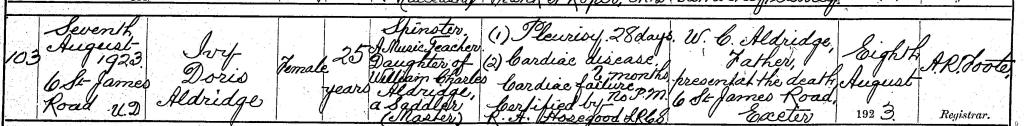 103
Seventh
August
1923
6 St. James
Road U D
Ivy
Doris
Aldridge
Female
25
years
Spinster,
A Music Teacher
Daughter of
William Charles
Aldridge,
a Saddler
(Master)
(1) Pleurisy 28 days.
(2) Cardiac disease.
2 months
Cardiac failure
No P.M.
Certified by
R. A. Hosegood LRCS
W. C. Aldridge,
Father,
present at the death,
6 St James Road,
Exeter
Eighth
August
1923.
A R Foote,
Registrar.